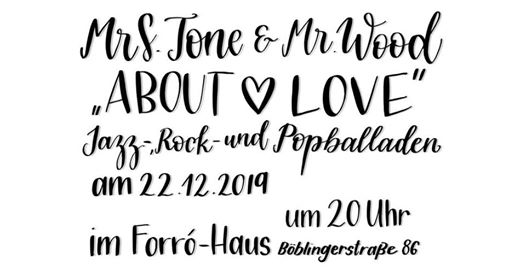 MrS. Tone & Mr. Wood
„ABOUT ♡ LOVE"
Jazz-, Rock- und Popballaden
am 22.12.2019
um 20 Uhr
im Forró-Haus Böblingerstraße 86